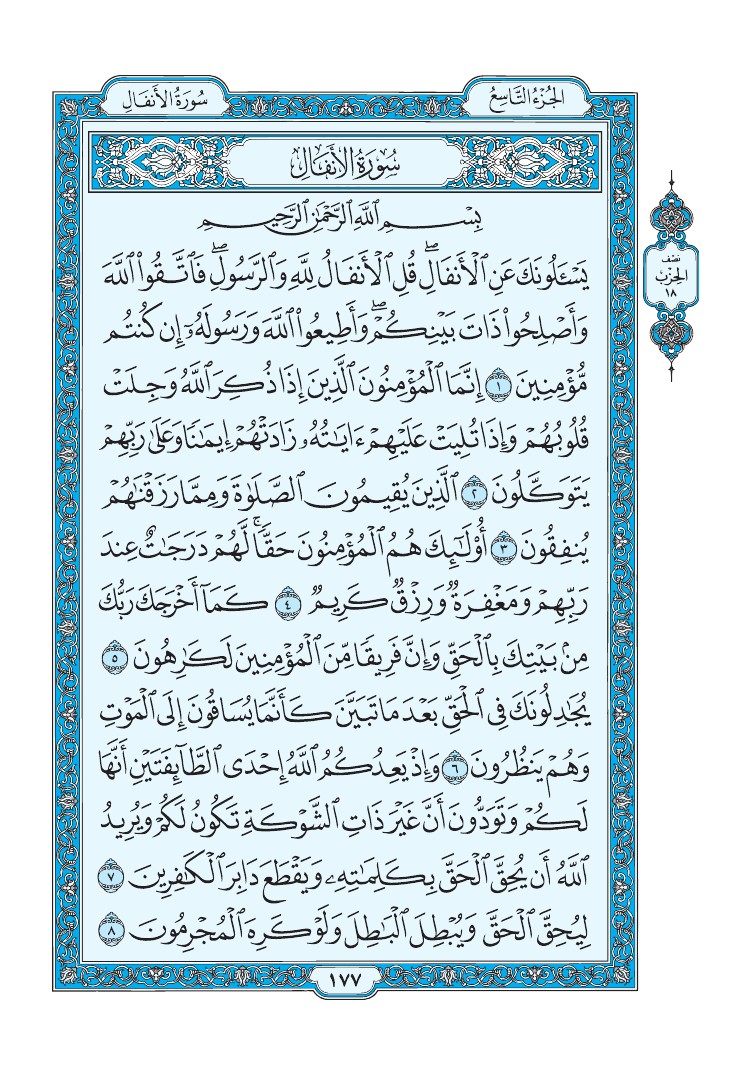 سُورَةُ الأَنفَالِ
الجُزْءُ التَّاسِعُ
سُورَةُ الأَنفَالِ
بِسْمِ ٱللَّهِ ٱلرَّحْمَٰنِ ٱلرَّحِيمِ
يَسْـَٔلُونَكَ عَنِ ٱلْأَنفَالِۖ قُلِ ٱلْأَنفَالُ لِلَّهِ وَٱلرَّسُولِۖ فَٱتَّقُوا۟ ٱللَّهَ
وَأَصْلِحُوا۟ ذَاتَ بَيْنِكُمْۖ وَأَطِيعُوا۟ ٱللَّهَ وَرَسُولَهُۥٓ إِن كُنتُم
مُّؤْمِنِينَ ١ إِنَّمَا ٱلْمُؤْمِنُونَ ٱلَّذِينَ إِذَا ذُكِرَ ٱللَّهُ وَجِلَتْ
قُلُوبُهُمْ وَإِذَا تُلِيَتْ عَلَيْهِمْ ءَايَٰتُهُۥ زَادَتْهُمْ إِيمَٰنًا وَعَلَىٰ رَبِّهِمْ
يَتَوَكَّلُونَ ٢ ٱلَّذِينَ يُقِيمُونَ ٱلصَّلَوٰةَ وَمِمَّا رَزَقْنَٰهُمْ
يُنفِقُونَ ٣ أُو۟لَٰٓئِكَ هُمُ ٱلْمُؤْمِنُونَ حَقًّاۚ لَّهُمْ دَرَجَٰتٌ عِندَ
رَبِّهِمْ وَمَغْفِرَةٌ وَرِزْقٌ كَرِيمٌ ٤ كَمَآ أَخْرَجَكَ رَبُّكَ
مِنۢ بَيْتِكَ بِٱلْحَقِّ وَإِنَّ فَرِيقًا مِّنَ ٱلْمُؤْمِنِينَ لَكَٰرِهُونَ ٥
يُجَٰدِلُونَكَ فِى ٱلْحَقِّ بَعْدَ مَا تَبَيَّنَ كَأَنَّمَا يُسَاقُونَ إِلَى ٱلْمَوْتِ
وَهُمْ يَنظُرُونَ ٦ وَإِذْ يَعِدُكُمُ ٱللَّهُ إِحْدَى ٱلطَّآئِفَتَيْنِ أَنَّهَا
لَكُمْ وَتَوَدُّونَ أَنَّ غَيْرَ ذَاتِ ٱلشَّوْكَةِ تَكُونُ لَكُمْ وَيُرِيدُ
ٱللَّهُ أَن يُحِقَّ ٱلْحَقَّ بِكَلِمَٰتِهِۦ وَيَقْطَعَ دَابِرَ ٱلْكَٰفِرِينَ ٧
لِيُحِقَّ ٱلْحَقَّ وَيُبْطِلَ ٱلْبَٰطِلَ وَلَوْ كَرِهَ ٱلْمُجْرِمُونَ ٨
نصف
الحِزْب
١٨
١٧٧